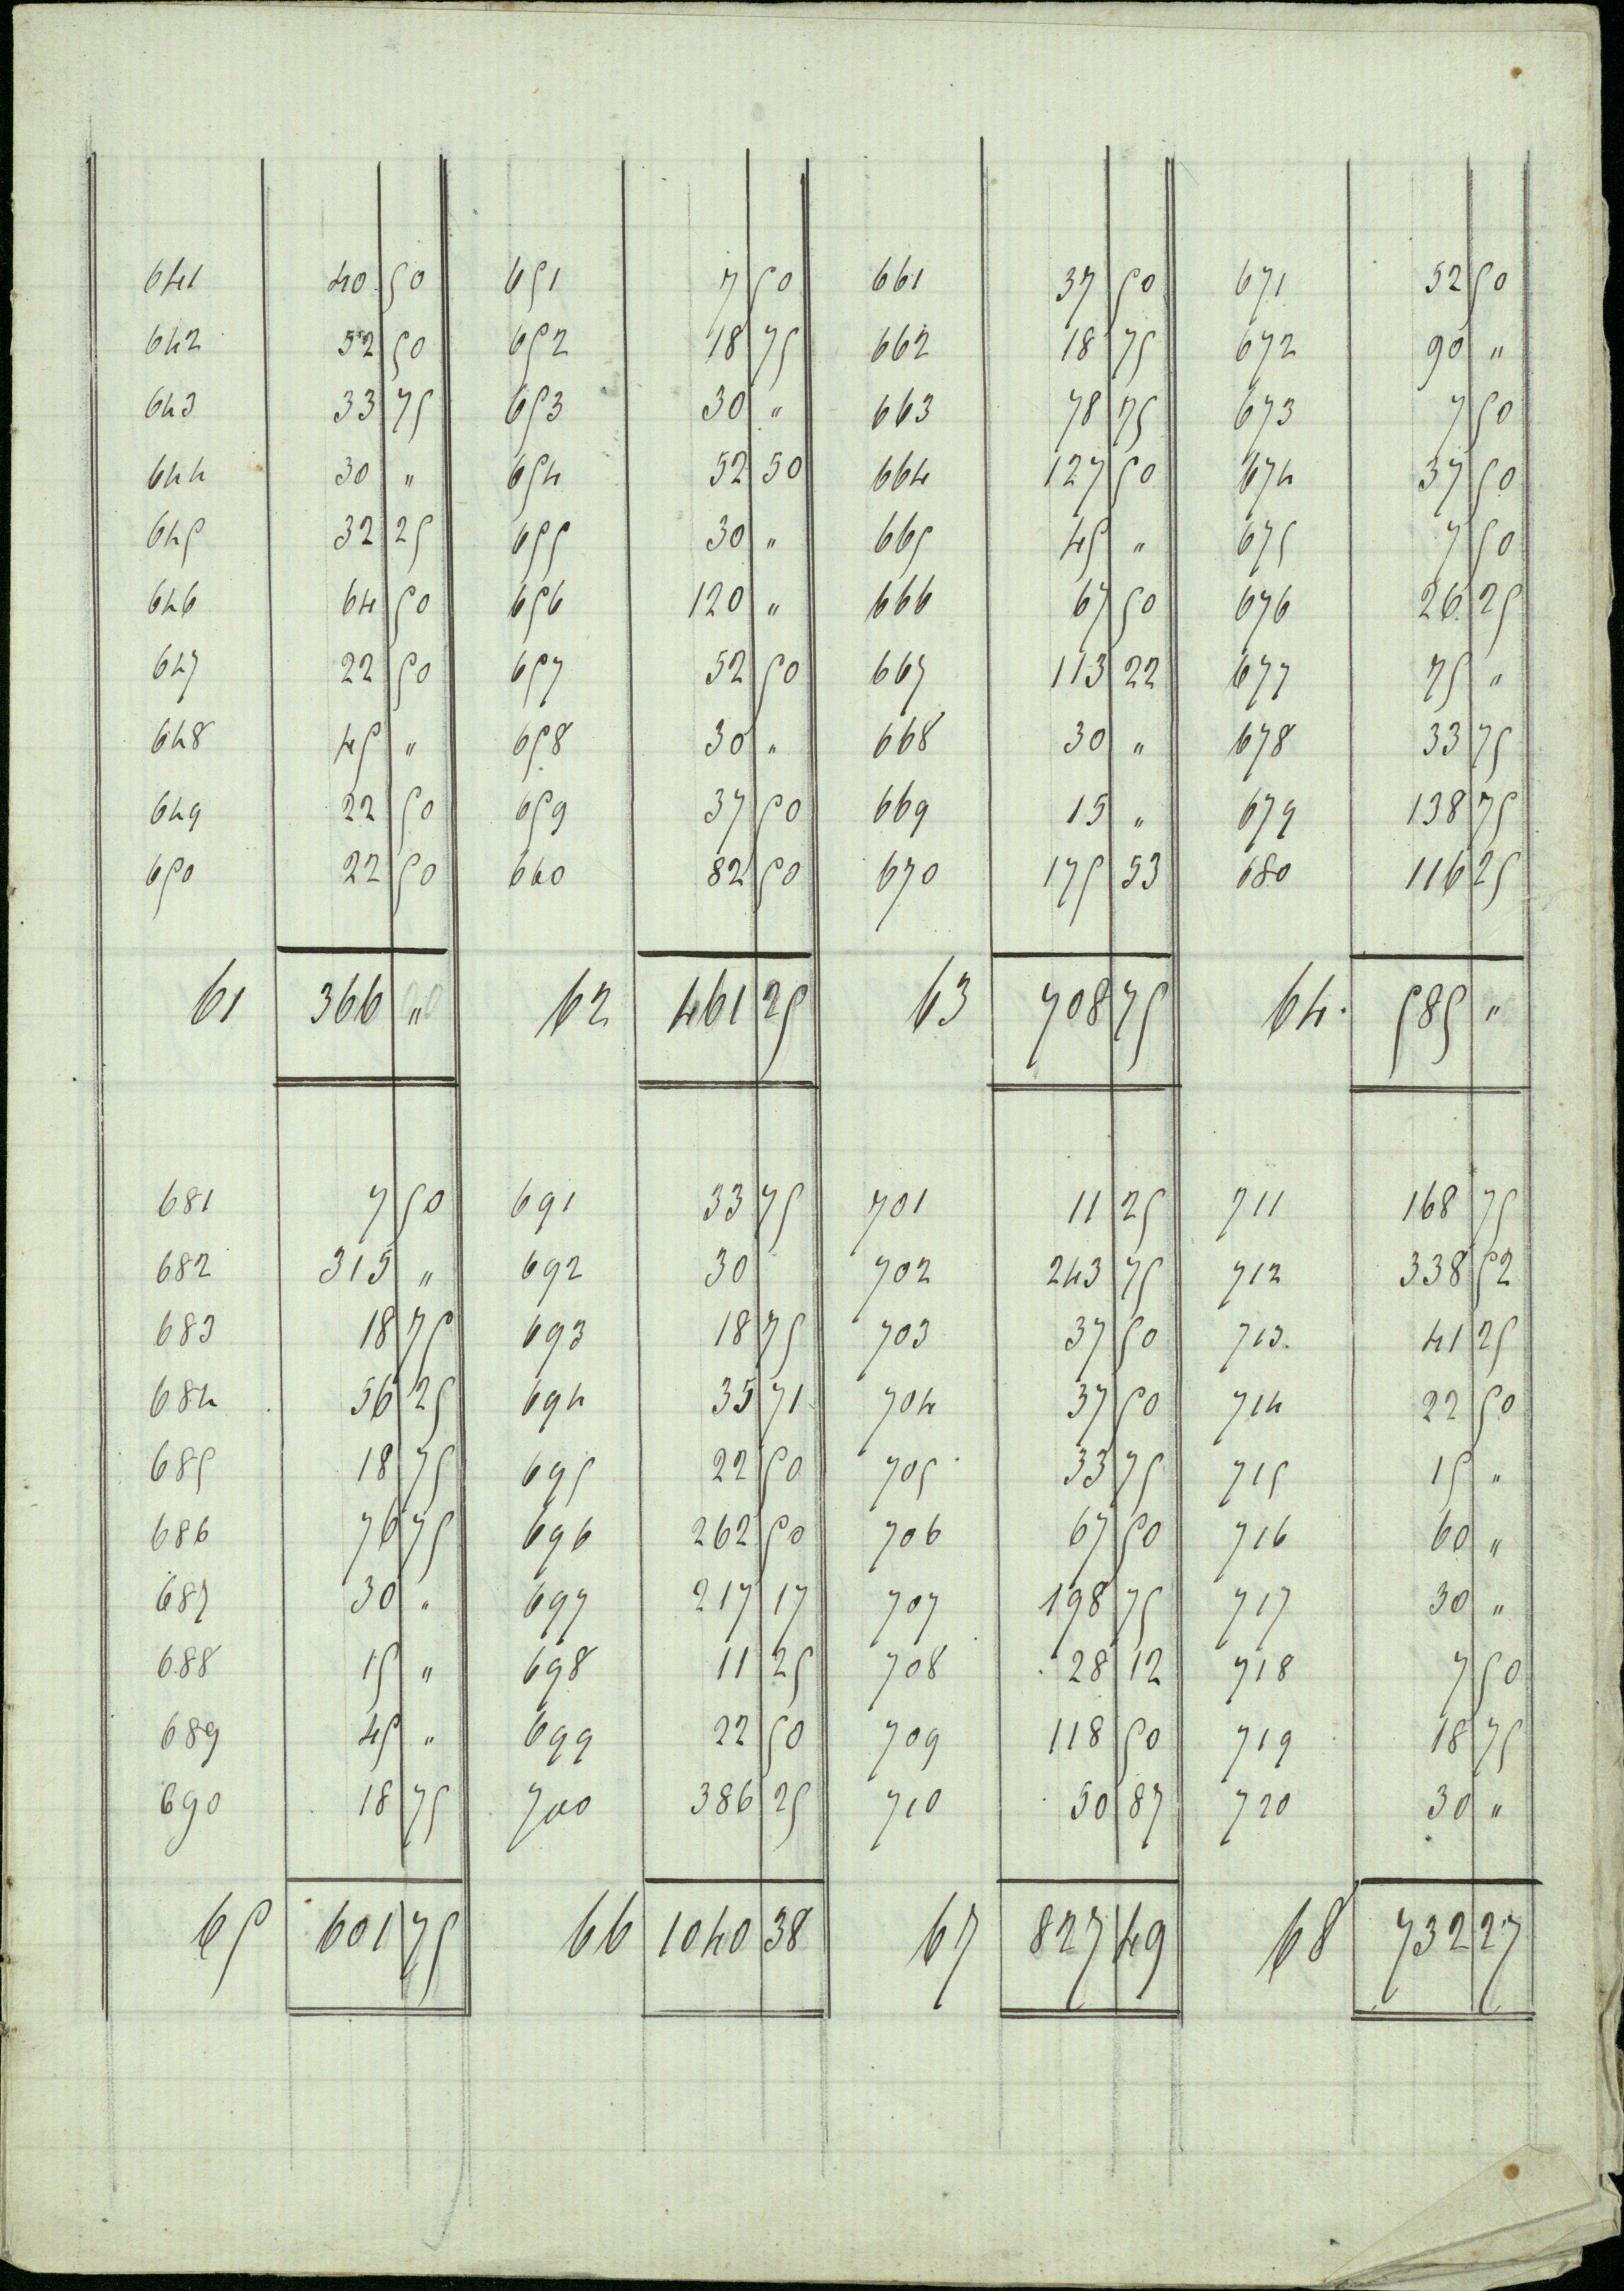 641 40 50 651 7 50 661 37 50 671 52 50
642 52 50 652 18 75 662 18 75 672 90 "
643 33 75 653 30 " 663 78 75 673 7 50
644 30 " 654 52 50 664 127 50 674 37 50
645 32 25 655 30 " 665 45 " 675 7 50
646 64 50 656 120 " 666 67 50 676 26 25
647 22 50 657 52 50 667 113 22 677 75 "
648 45 " 658 30 " 668 30 " 678 33 75
649 22 50 659 37 50 669 15 " 679 138 75
650 22 50 660 82 50 670 175 53 680 116 25
61 366 " 62 461 25 63 708 75 64 585 "
681 7 50 691 33 75 701 11 25 711 168 75
682 315 " 692 30 702 243 75 712 338 52
683 18 75 693 18 75 703 37 50 713 41 25
684 56 25 694 35 71 704 37 50 714 22 50
685 18 75 695 22 50 705 33 75 715 15 "
686 76 75 696 262 50 706 67 50 716 60 "
687 30 " 697 217 17 707 198 75 717 30 "
688 15 " 698 11 25 708 28 12 718 7 50
689 45 " 699 22 50 709 118 50 719 18 75
690 18 75 700 386 25 710 50 87 720 30 "
65 601 75 66 1040 38 67 827 49 68 732 27